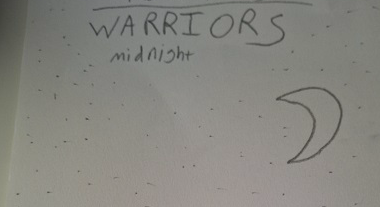 WARRIORS
midnight